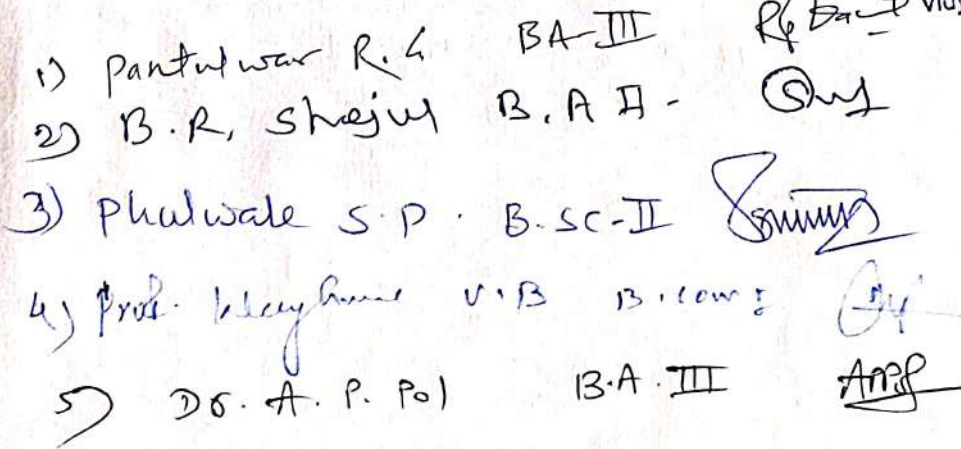 1) Pantulwar R.G BA-III
2) B.R. Shejul B.A II -
3) Phulwale S.P. B.SC-II
4) Prof. V.B B.com I
5) Dr. A. P. Pol B.A. III